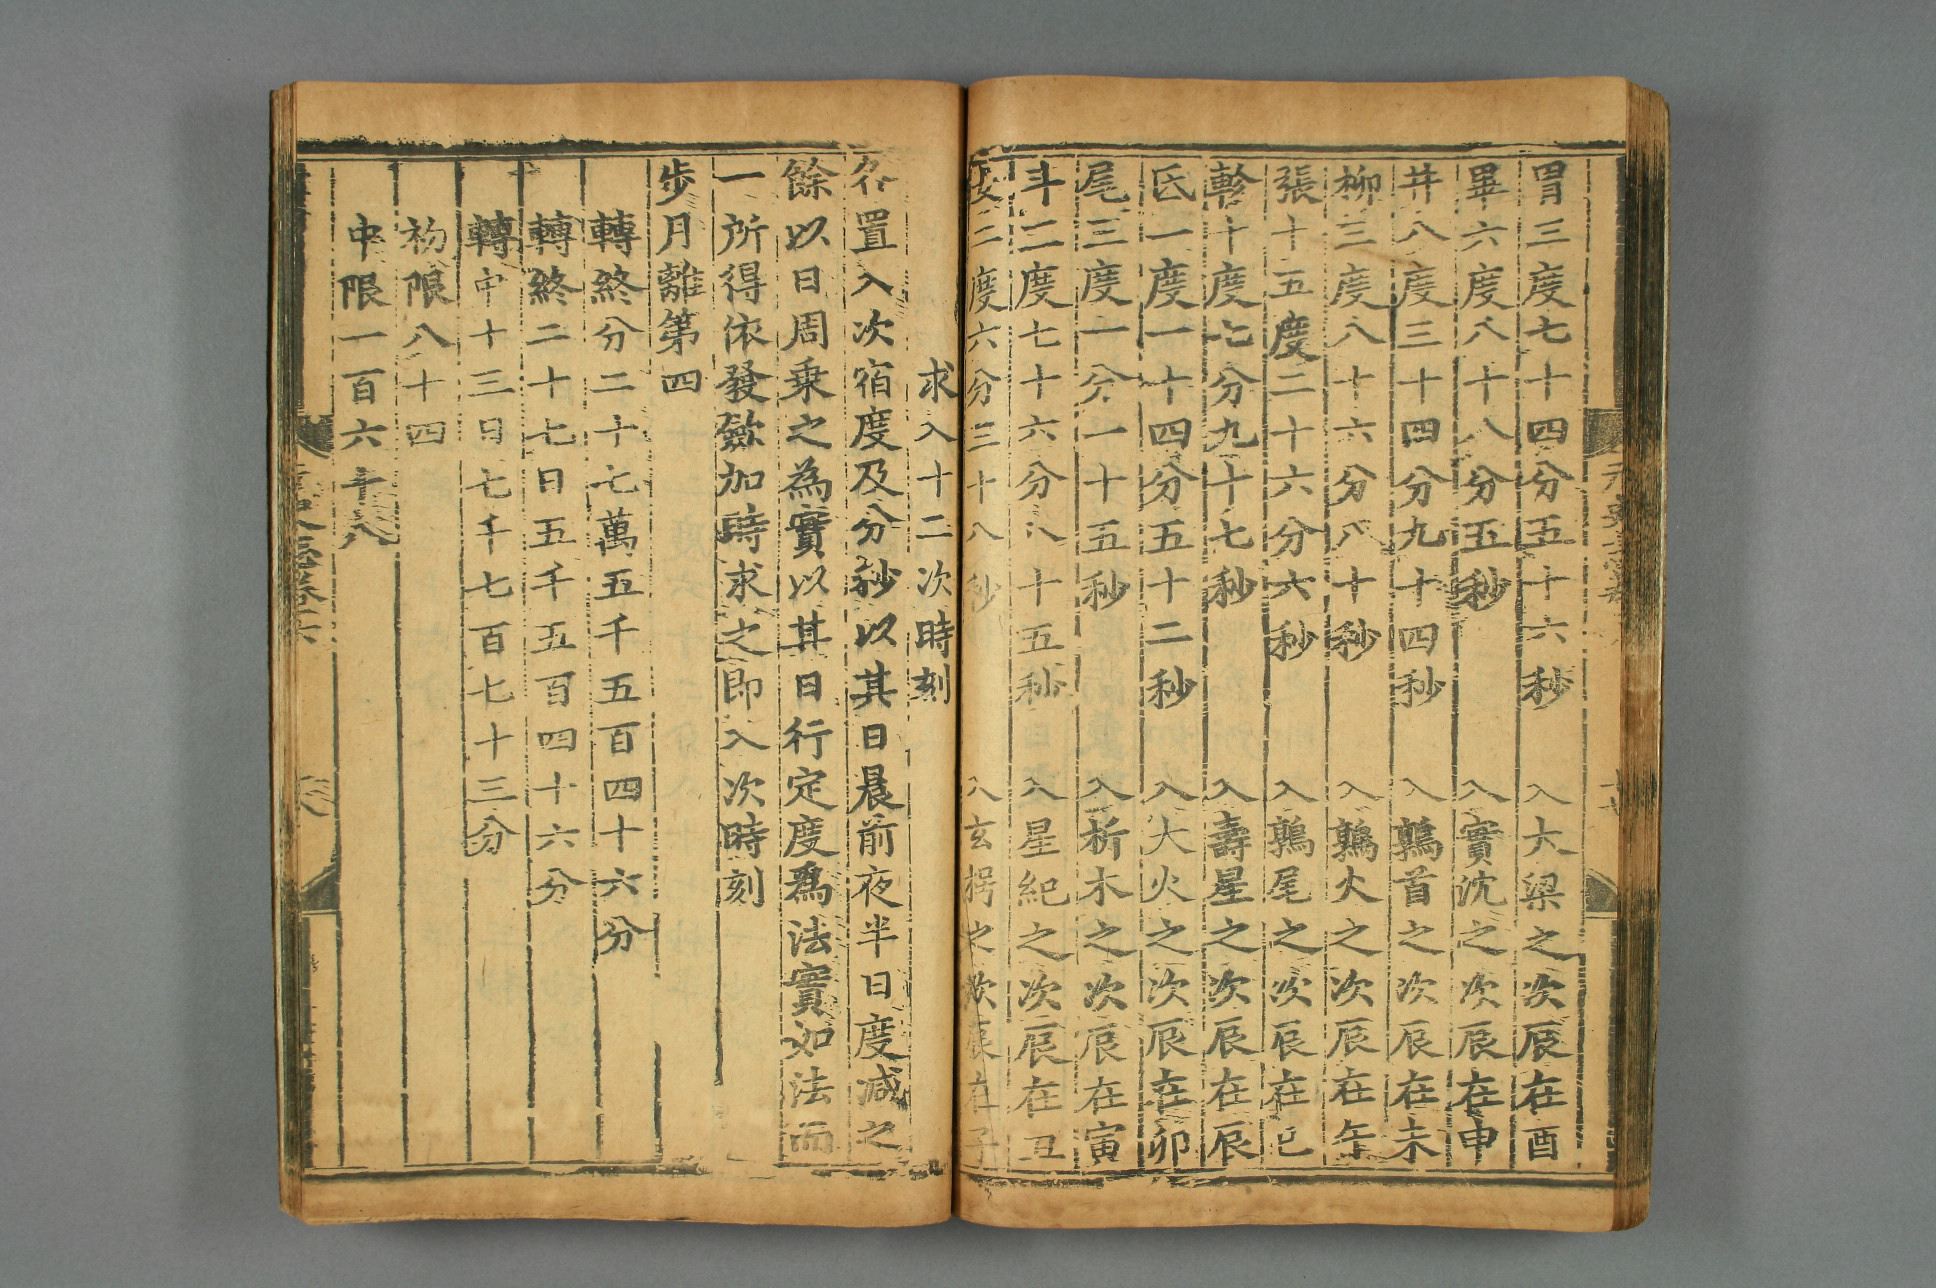 胃三度七十四分五十六秒　入大梁之次辰在酉
畢六度八十八分五秒　入實沈之次辰在申
井八度三十四分九十四秒　入鶉首之次辰在未
柳三度八十六分八十秒　入鶉火之次辰在午
張十五度二十六分六秒　入鶉尾之次辰在巳
軫十度七分九十七秒　入壽星之次辰在辰
氐一度一十四分五十二秒　入大火之次辰在卯
尾三度一分一十五秒　入析木之次辰在寅
斗二度七十六分八十五秒　入星紀之次辰在丑
女二度六分三十八秒　入玄枵之次辰在子
求入十二次時刻
各置入次宿度及分秒以其日晨前夜半日度減之
餘以日周乗之為實以其日行定度爲法實如法而
一所得依發斂加時求之即入次時刻
步月離第四
轉終分二十七萬五千五百四十六分
轉終二十七日五千五百四十六分
轉中十三日七千七百七十三分
初限八十四
中限一百六十八